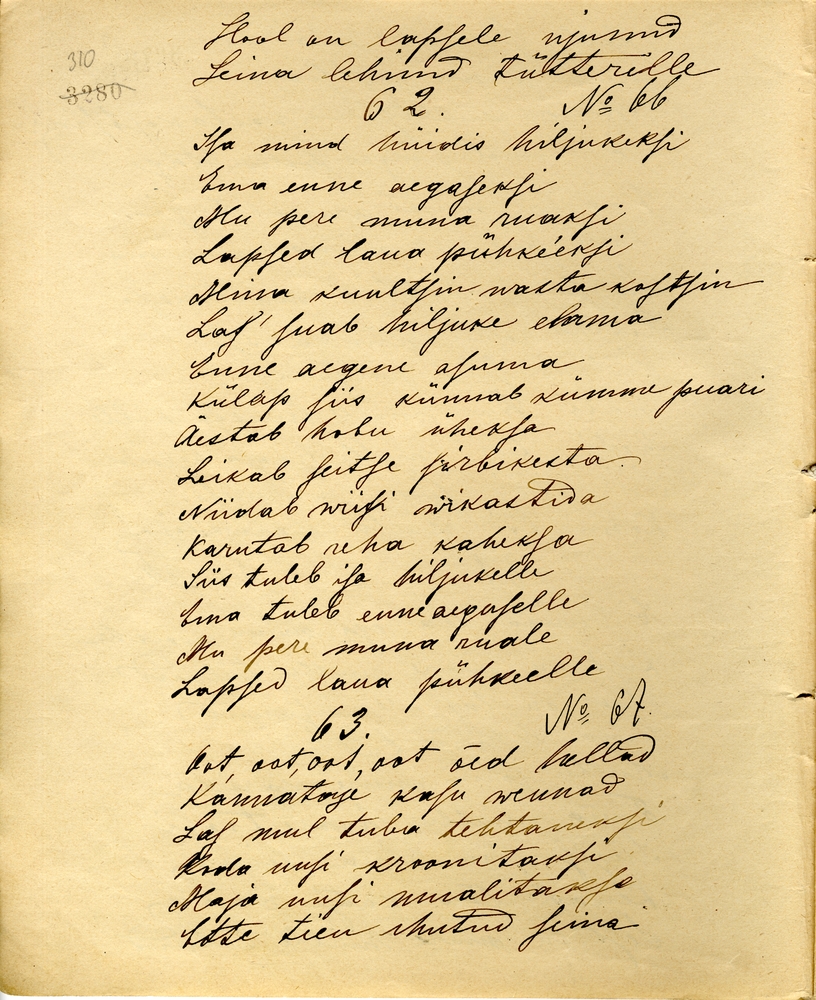 310
3280
Hool on lapsele ujunud
Leina lehind tütterelle
62. No 66
Isa mind hüidis hiljukeksi
Ema enne aegaseksi
Mu pere muna ruaksi
Lapsed laua pühkeeksi
Mina kuultsin wasta kostsin
Las' suab hiljuke elama
Enne aegene asuma
Külap siis künnab kümme puari
Äestab hobu üheksa
Leikab seitse sirbikesta
Niidab wiisi wikastida
Karutab reha kaheksa
Siis tuleb isa hiljukelle
Ema tuleb enneaegaselle
Mu pere muna ruale
Lapsed laua pühkeelle
63. No 67.
Oot, oot, oot, oot õed hellad
Kannataje kasu wennad
Las mul tuba tehtaneksi
Koda uusi kroonitaksi
Maja uusi mualitakse
Ette tien ehutud seina